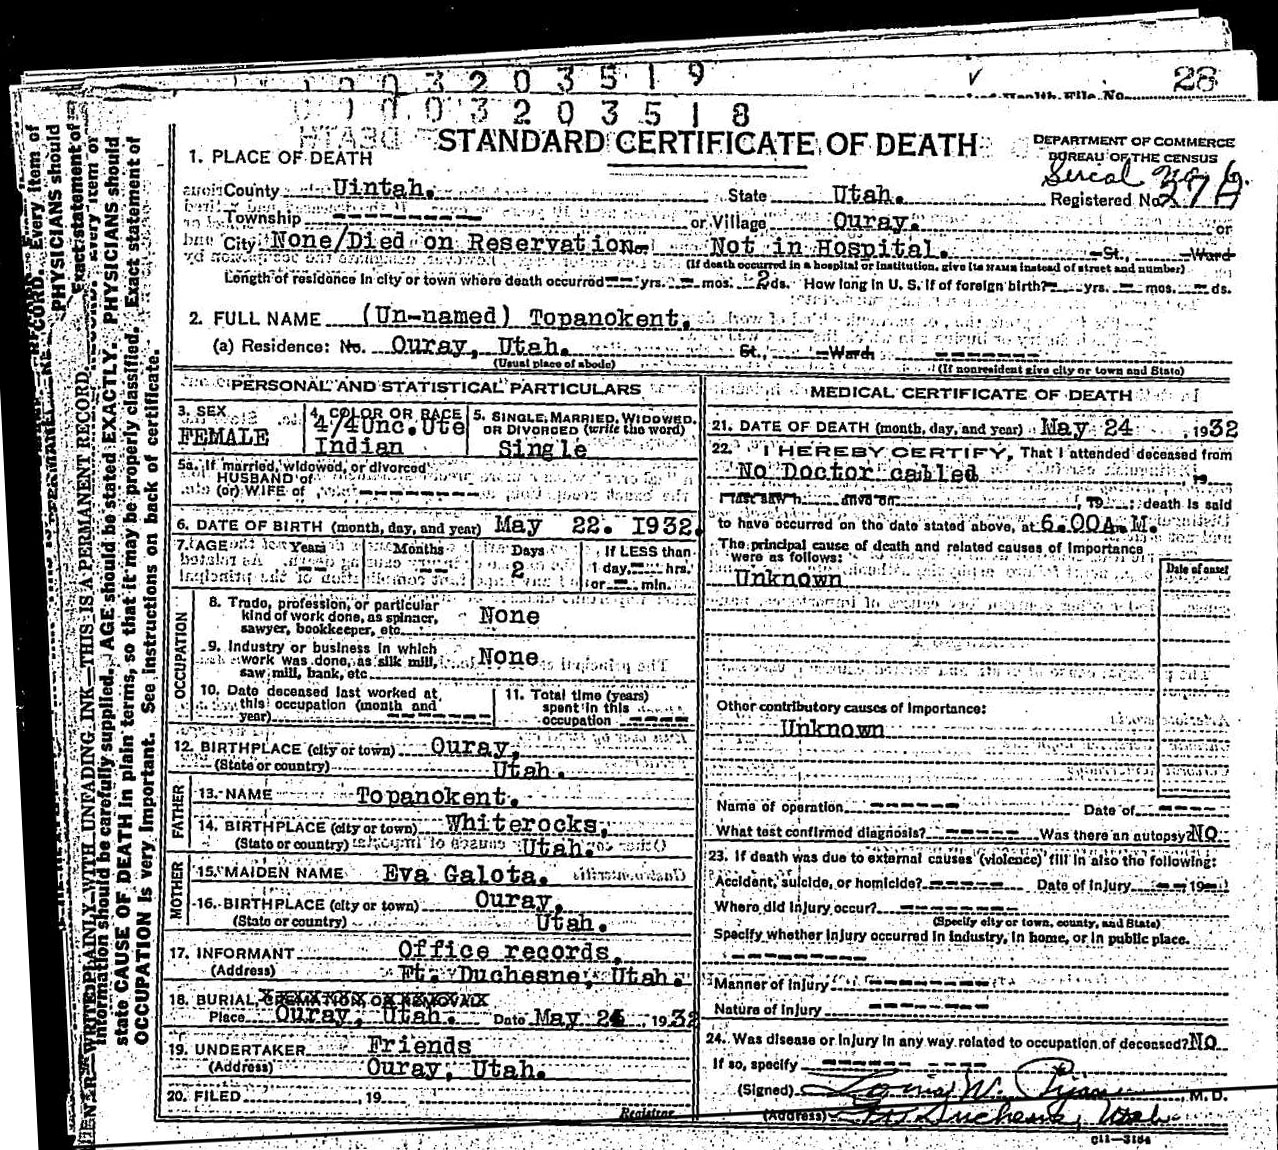 1 0 0 3 2 0 3 5 1 9
28
Health File No.
1 0 0 3 2 0 3 5 1 8
STANDARD CERTIFICATE OF DEATH
DEPARTMENT OF COMMERCE
BUREAU OF THE CENSUS
Serial No.
1. PLACE OF DEATH
County Uintah. State Utah. Registered No.
Township ---------- or Village Ouray. or
City None/Died on Reservation. No. Not in Hospital. St., Ward
(If death occurred in a hospital or institution, give its NAME instead of street and number)
Length of residence in city or town where death occurred -- yrs. - mos. 2 ds. How long in U. S. if of foreign birth? - yrs. - mos. - ds.
2. FULL NAME (Un-named) Topanokent.
(a) Residence: No. Ouray, Utah. St., Ward -------
(Usual place of abode) (If nonresident give city or town and State)
PERSONAL AND STATISTICAL PARTICULARS
3. SEX
FEMALE
4. COLOR OR RACE
4/4Unc. Ute
Indian
5. SINGLE, MARRIED, WIDOWED,
OR DIVORCED (write the word)
Single
5a. If married, widowed, or divorced
HUSBAND of
(or) WIFE of ---------
6. DATE OF BIRTH (month, day, and year) May 22. 1932.
7. AGE Years Months Days If LESS than
-- -- 2 1 day, -- hrs.
or - min.
OCCUPATION
8. Trade, profession, or particular
kind of work done, as spinner, None
sawyer, bookkeeper, etc.
9. Industry or business in which
work was done, as silk mill, None
saw mill, bank, etc.
10. Date deceased last worked at
this occupation (month and
year) -------
11. Total time (years)
spent in this
occupation ----
12. BIRTHPLACE (city or town) Ouray,
(State or country) Utah.
FATHER
13. NAME Topanokent.
14. BIRTHPLACE (city or town) Whiterocks,
(State or country) Utah.
MOTHER
15. MAIDEN NAME Eva Galota.
16. BIRTHPLACE (city or town) Ouray,
(State or country) Utah.
17. INFORMANT Office records,
(Address) Ft. Duchesne, Utah.
18. BURIAL, CREMATION OR REMOVAL
Place Ouray, Utah. Date May 24, 1932
19. UNDERTAKER Friends
(Address) Ouray, Utah.
20. FILED , 19
Registrar
MEDICAL CERTIFICATE OF DEATH
21. DATE OF DEATH (month, day, and year) May 24 , 1932
22. I HEREBY CERTIFY, That I attended deceased from
No Doctor called , 19
I last saw h alive on , 19 ; death is said
to have occurred on the date stated above, at 6.00A.M.
The principal cause of death and related causes of importance
were as follows:
Date of onset
Unknown
Other contributory causes of importance:
Unknown
Name of operation ------ Date of ----
What test confirmed diagnosis? ----- Was there an autopsy? No
23. If death was due to external causes (violence) fill in also the following:
Accident, suicide, or homicide? ----- Date of injury -- 19 --
Where did injury occur? --------
(Specify city or town, county, and State)
Specify whether injury occurred in industry, in home, or in public place.
---------
Manner of injury --------
Nature of injury --------
24. Was disease or injury in any way related to occupation of deceased? No
If so, specify -------
(Signed) , M. D.
(Address) Ft. Duchesne, Utah
C11—3184
WRITE PLAINLY WITH UNFADING INK—THIS IS A PERMANENT RECORD. Every item of
information should be carefully supplied. AGE should be stated EXACTLY. PHYSICIANS should
state CAUSE OF DEATH in plain terms, so that it may be properly classified. Exact statement of
OCCUPATION is very important. See instructions on back of certificate.